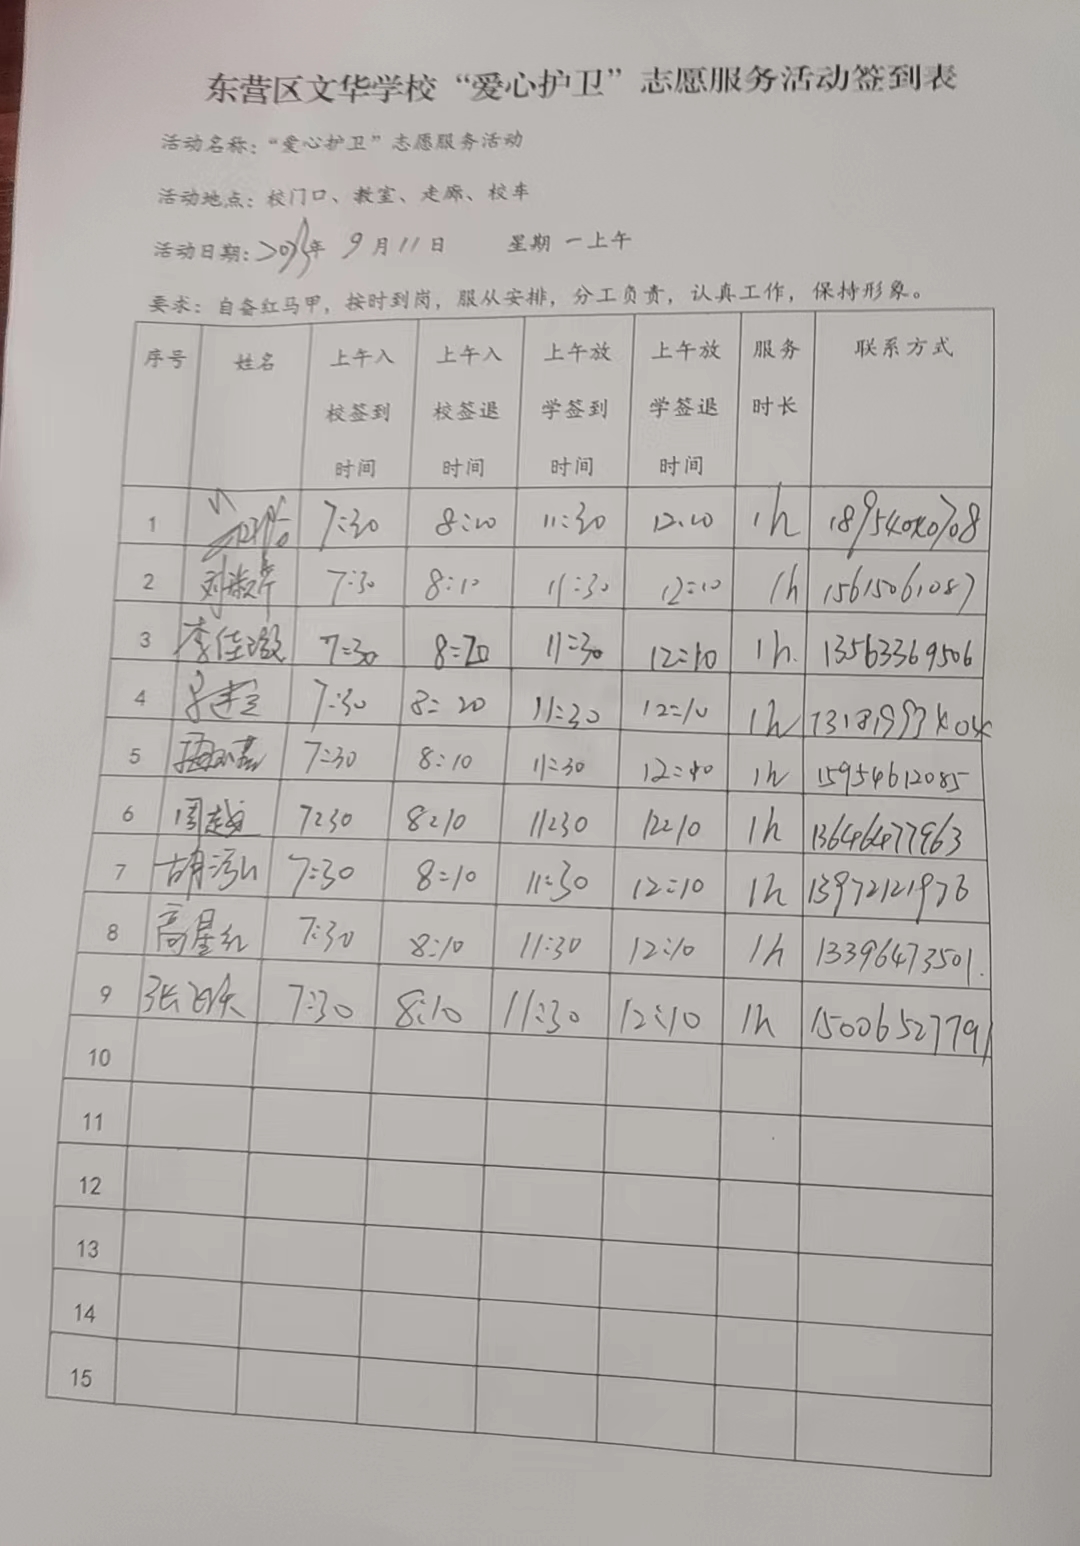 东营区文华学校“爱心护卫”志愿服务活动签到表
活动名称：“爱心护卫”志愿服务活动
活动地点：校门口、教室、走廊、校车
活动日期： 年 9月11日 星期 一上午
要求：自备红马甲，按时到岗，服从安排，分工负责，认真工作，保持形象。
序号 姓名 上午入校签到时间 上午入校签退时间 上午放学签到时间 上午放学签退时间 服务时长 联系方式
1 7:30 8:10 11:30 12:10 1h
2 7:30 8:10 11:30 12:10 1h 15615061087
3 李佳璇 7:30 8:20 11:30 12:10 1h. 13563369506
4 7:30 8:20 11:30 12:10 1h
5 7:30 8:10 11:30 12:10 1h 15954612085
6 周越 7:30 8:10 11:30 12:10 1h 13646477963
7 7:30 8:10 11:30 12:10 1h 13972121976
8 高星红 7:30 8:10 11:30 12:10 1h 13396473501.
9 7:30 8:10 11:30 12:10 1h 15006527791
10
11
12
13
14
15